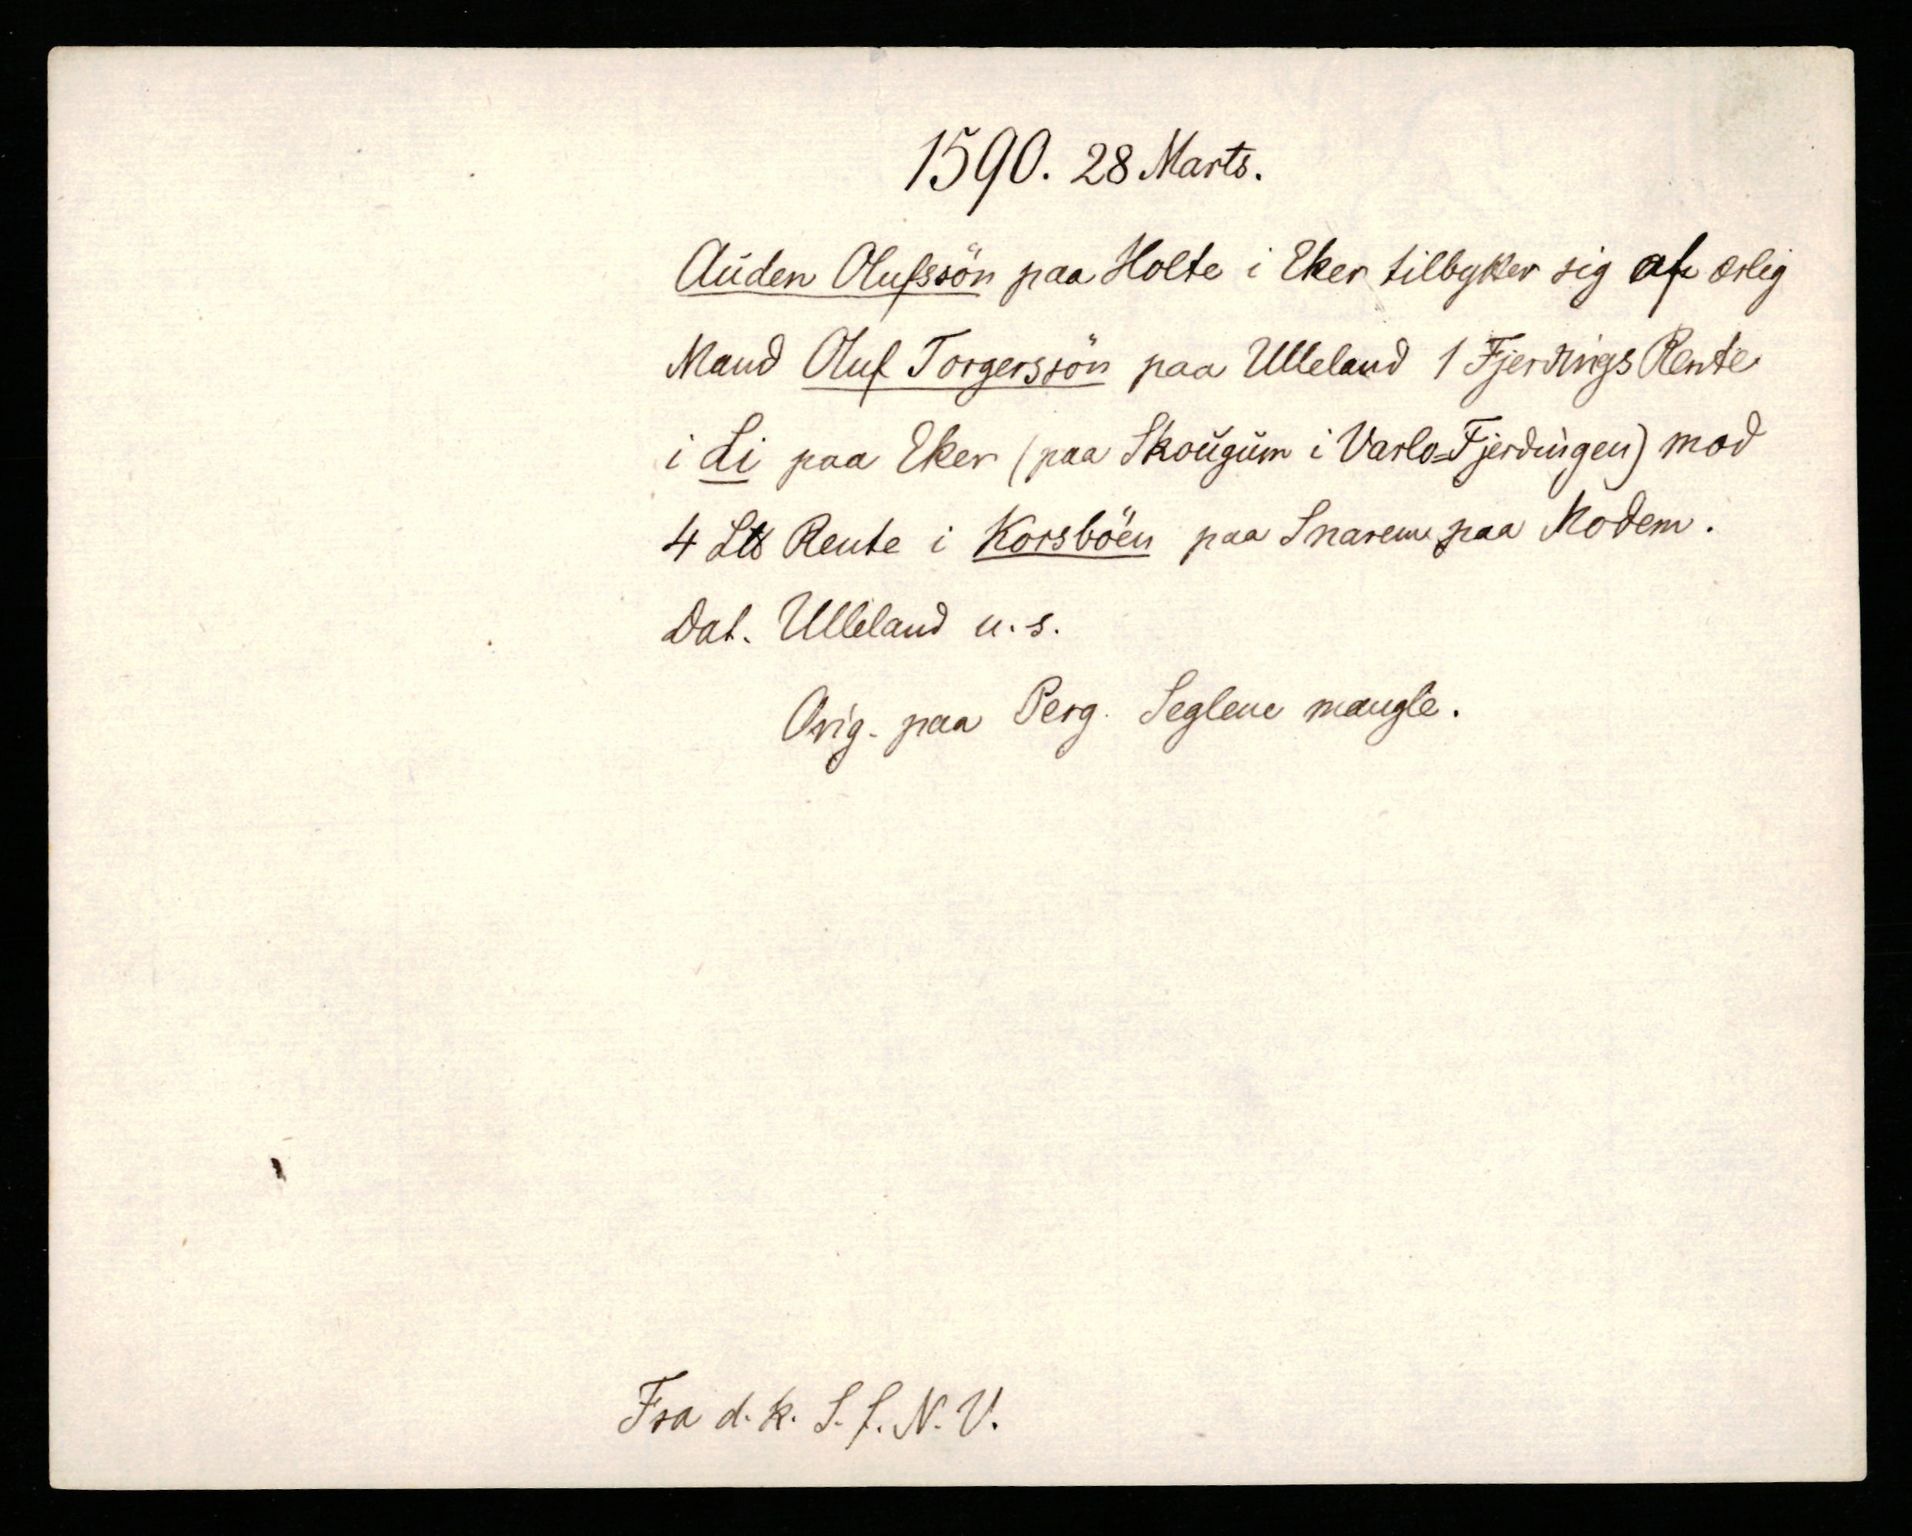 1590. 28 Marts.
Auden Olufssön paa Holte i Eker tilbytter sig af ærlig
Mand Oluf Torgerssön paa Ulleland 1 Fjerdings Rente
i Li paa Eker (paa Skougum i Varlo=Fjerdingen) mod
4 L℔ Rente i Korsböen paa Snarem paa Modem.
Dat. Ulleland u. s.
Orig. paa Perg. Seglene mangle.
Fra d. k. S. f. N. V.